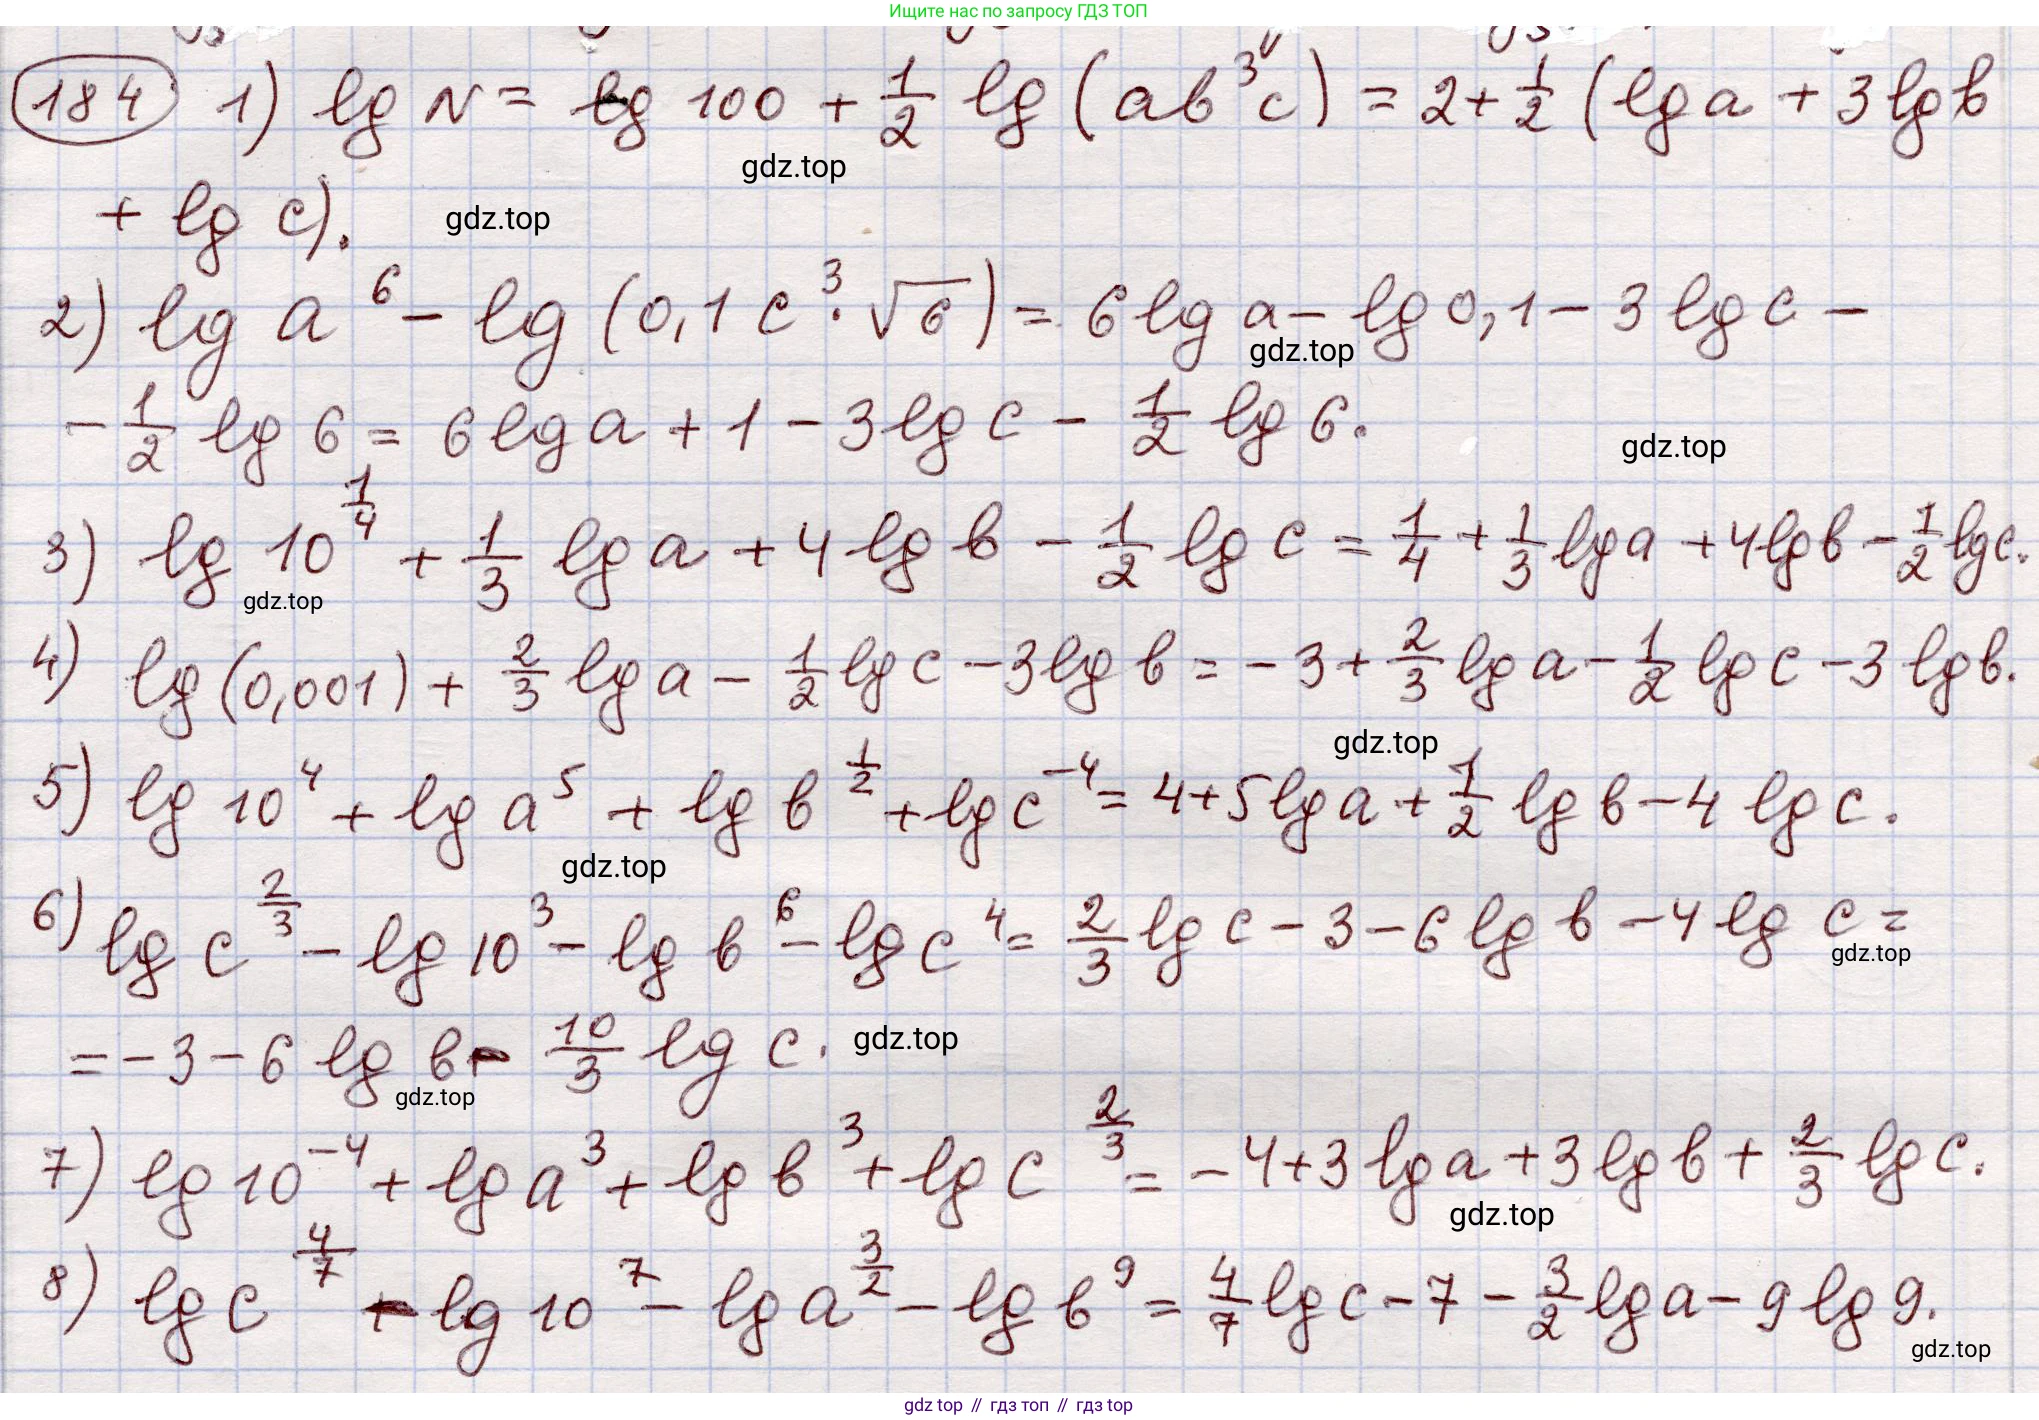 Ищите нас по запросу ГДЗ ТОП
184 1) lg N = lg 100 + 1/2 lg (ab³c) = 2 + 1/2 (lg a + 3 lg b
gdz.top
+ lg c).
gdz.top
2) lg a⁶ − lg (0,1 c³ · √6) = 6 lg a − lg 0,1 − 3 lg c −
gdz.top
− 1/2 lg 6 = 6 lg a + 1 − 3 lg c − 1/2 lg 6.
gdz.top
3) lg 10^(1/4) + 1/3 lg a + 4 lg b − 1/2 lg c = 1/4 + 1/3 lg a + 4 lg b − 1/2 lg c.
gdz.top
4) lg (0,001) + 2/3 lg a − 1/2 lg c − 3 lg b = −3 + 2/3 lg a − 1/2 lg c − 3 lg b.
gdz.top
5) lg 10⁴ + lg a⁵ + lg b^(1/2) + lg c⁻⁴ = 4 + 5 lg a + 1/2 lg b − 4 lg c.
gdz.top
6) lg c^(2/3) − lg 10³ − lg b⁶ − lg c⁴ = 2/3 lg c − 3 − 6 lg b − 4 lg c =
gdz.top
= −3 − 6 lg b − 10/3 lg c.
gdz.top
gdz.top
7) lg 10⁻⁴ + lg a³ + lg b³ + lg c^(2/3) = −4 + 3 lg a + 3 lg b + 2/3 lg c.
gdz.top
8) lg c^(4/7) − lg 10⁷ − lg a^(3/2) − lg b⁹ = 4/7 lg c − 7 − 3/2 lg a − 9 lg 9.
gdz.top
gdz top // гдз топ // гдз top